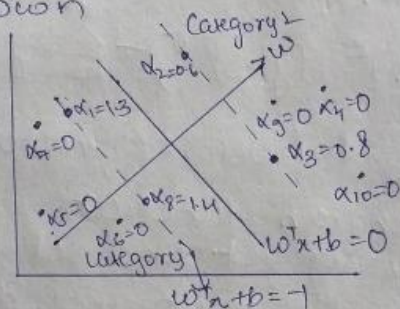 Category 2
w
α2=0.6
α1=1.3
α9=0
α4=0
α7=0
α3=0.8
α10=0
α5=0
α8=1.4
α6=0
Category
wᵀx+b=0
wᵀx+b=-1